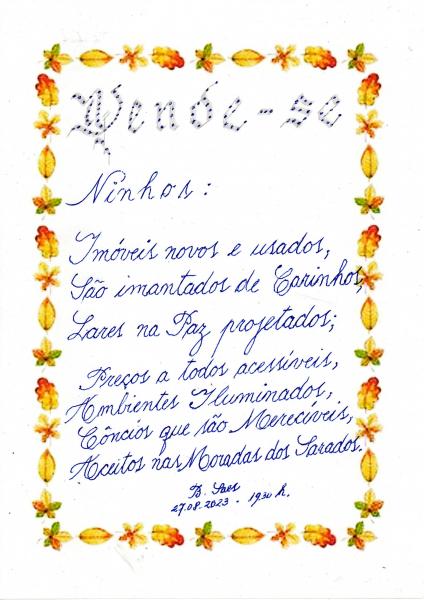 Vende-se
Ninhos:
Imóveis novos e usados,
São imantados de Carinhos,
Lares na Paz projetados;
Preços a todos acessíveis,
Ambientes Iluminados,
Côncios que são Merecíveis,
Aceitos nas Moradas dos Sarados.
B. Saes
27.08.2023 - 19:30 h.